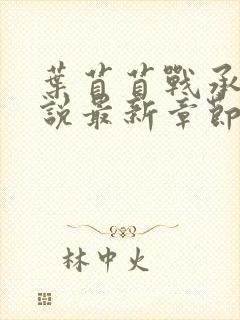 葉苜苜戰承
說最新章節
林中火